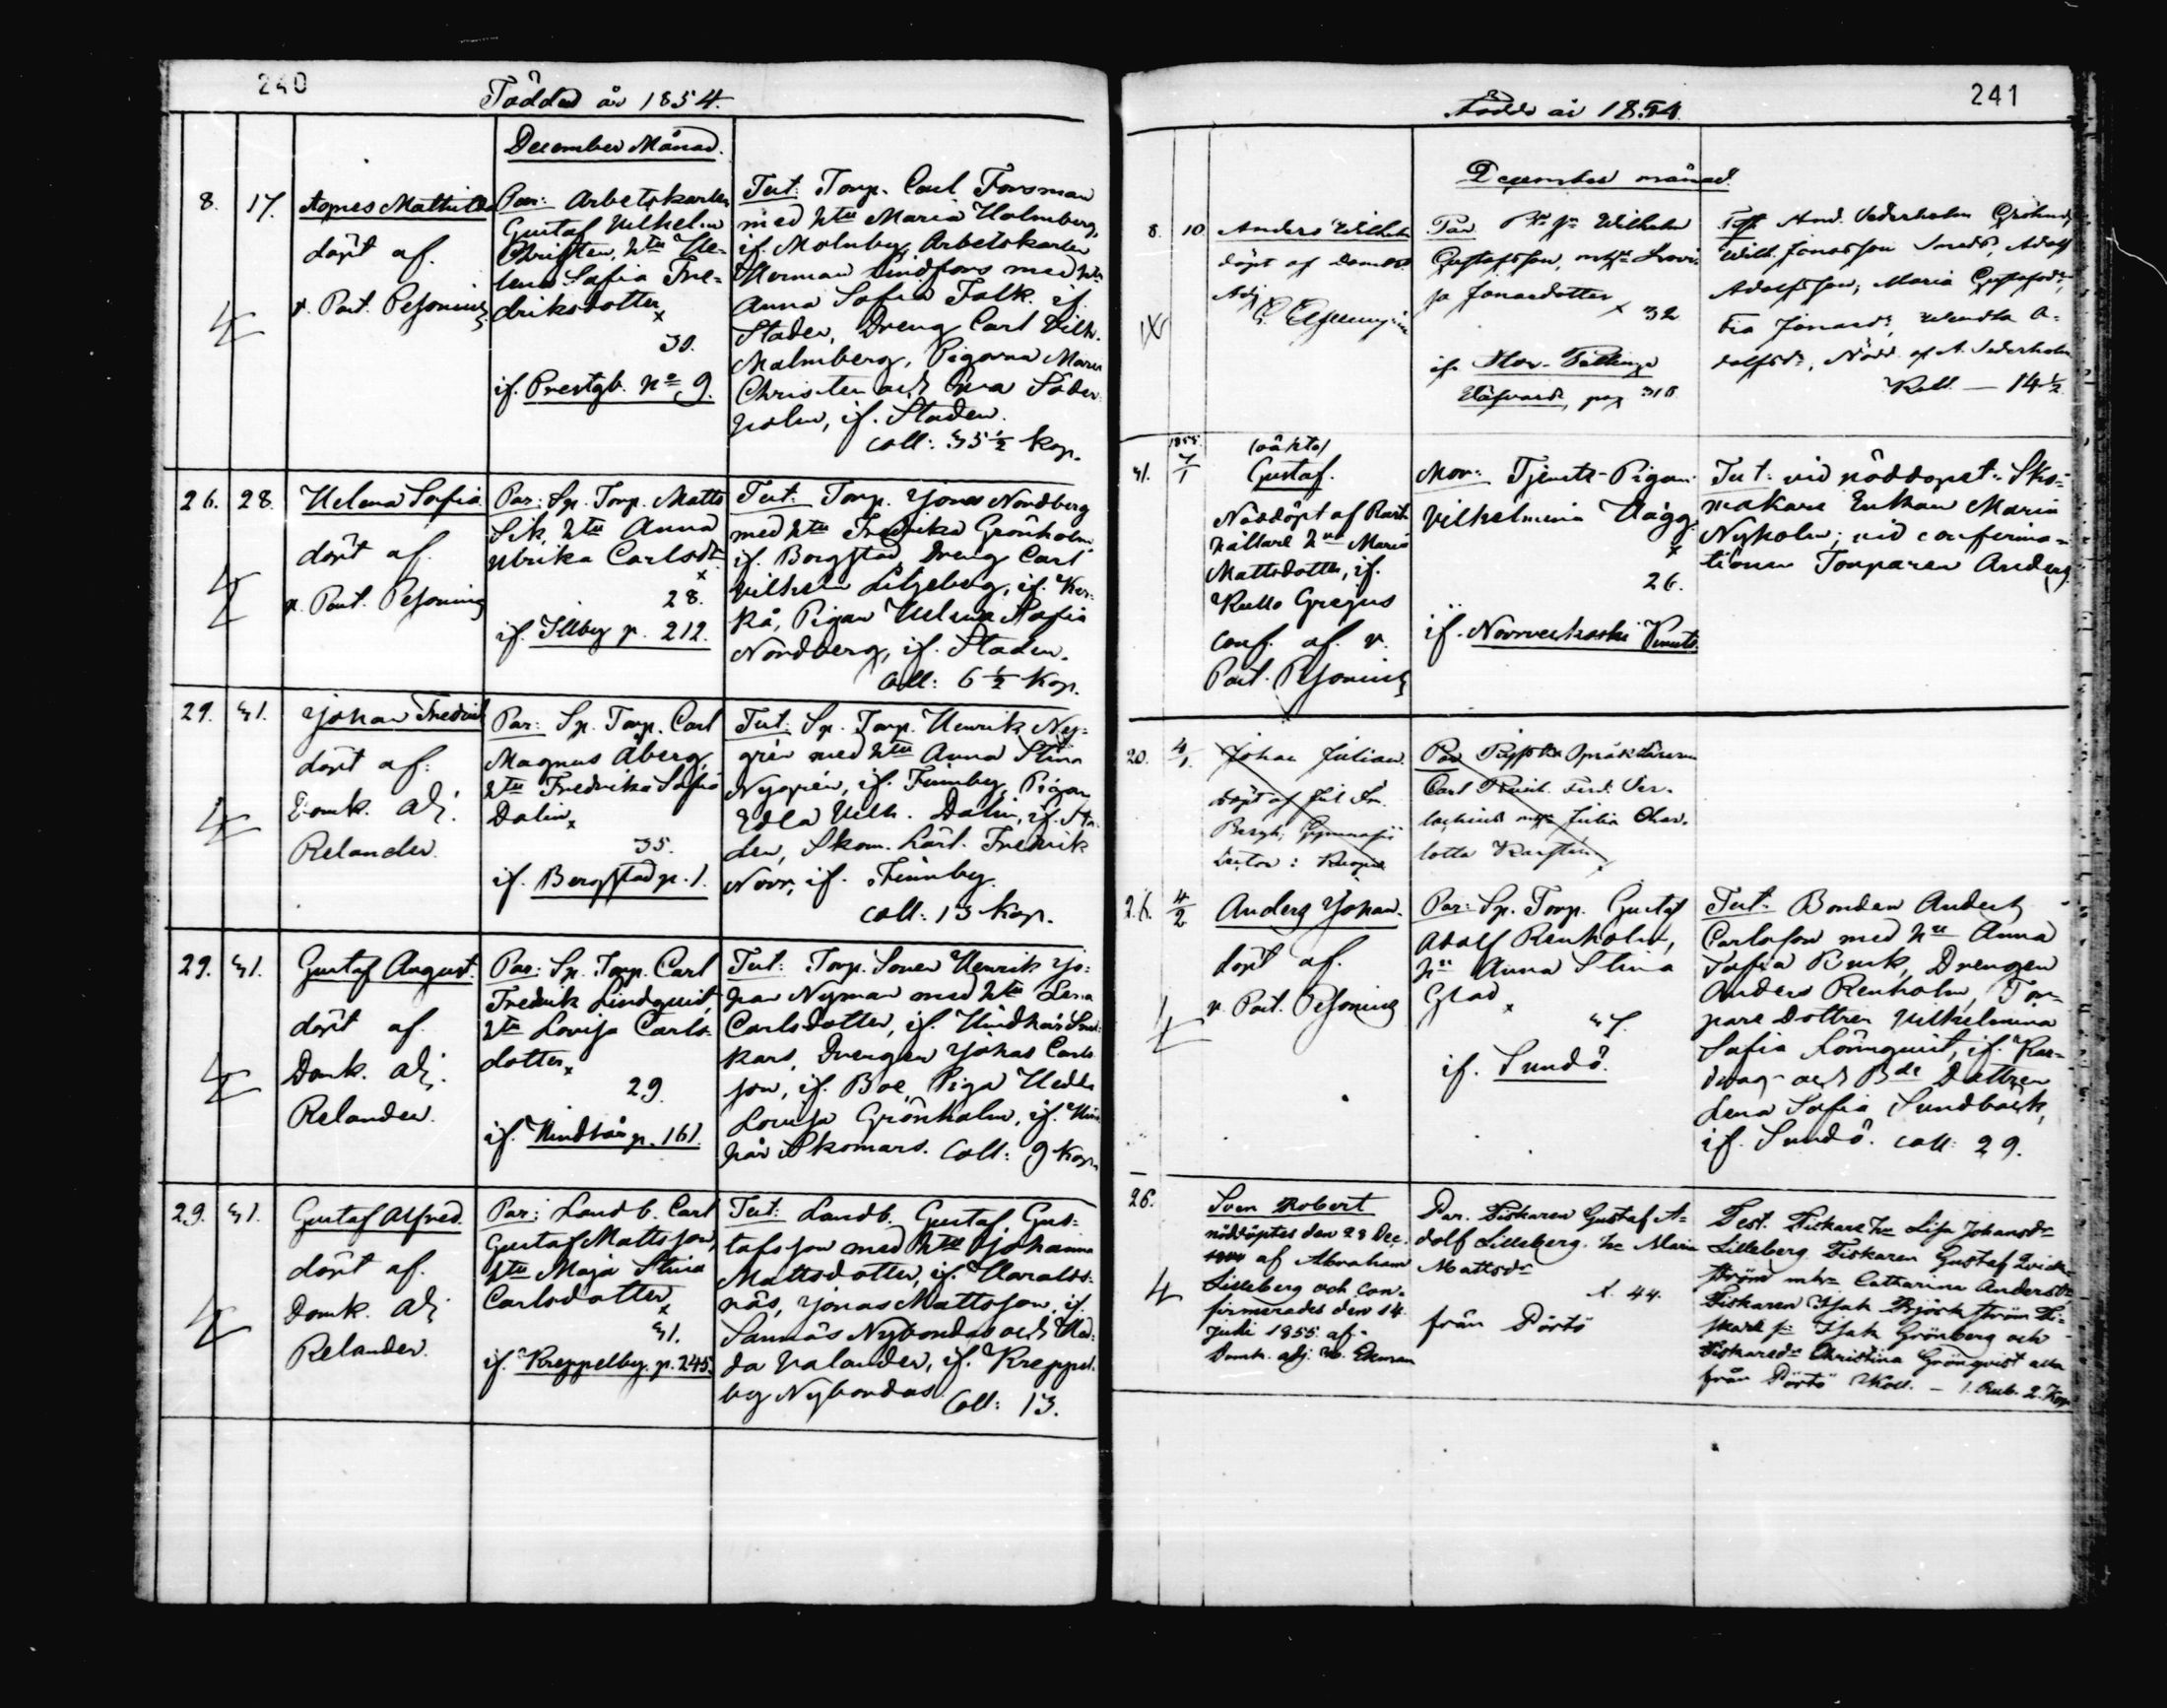 240
Födde år 1854.
December Månad.
8.
17.
Agnes Mathilda
döpt af.
v. Past. Pesonius
Par: Arbetskarlen
Gustaf Vilhelm
Christen, hstu He-
lena Sofia Fre-
driksdotter x
30.
if. Prestgb. No 9.
Test: Torp. Carl Forsman
med hstu Maria Holmberg,
if. Molnby, Arbetskarlen
Herman Lindfors med hstu
Anna Sofia Falk, if.
Staden, Dreng Carl Vilh.
Malmberg, Pigorna Maria
Christen och Eva Söder-
holm, if. Staden.
Coll: 35 ½ Kop.
26.
28.
Helena Sofia
döpt af.
v. Past. Pesonius
Par: Sp. Torp. Matts
Sik, hstu Anna
Ulrika Carlsdr
x
28.
if. Illby p. 212.
Test: Torp. Jonas Nordberg
med hstu Fredrika Grönholm,
if. Borgstad, Dreng Carl
Vilhelm Liljeberg, if. Ker-
kå, Pigan Helena Sofia
Nordberg, if. Staden.
Coll: 6 ½ Kop.
29.
31.
Johan Fredrik
döpt af:
Domk. Adj.
Relander.
Par: Sp. Torp. Carl
Magnus Åberg,
hstu Fredrika Sofia
Dalin x
35.
if. Borgstad p. 1.
Test: Sp. Torp. Henrik Ny-
grén med hstu Anna Stina
Nygrén, if. Finnby, Pigan
Edla Vilh. Dalin, if. Sta-
den, Skom. Lärl. Fredrik
Norr, if. Finnby.
Coll: 13 Kop.
29.
31.
Gustaf August.
döpt af.
Domk. Adj.
Relander.
Par: Sp. Torp. Carl
Fredrik Lindquist,
hstu Lovisa Carls-
dotter x
29.
if. Hindhår p. 161.
Test: Torp. Sonen Henrik Jo-
han Nyman med hstu Lena
Carlsdotter, if. Hindhår
kars, Drengen Johas Carls-
son, if. Boe, Piga Hedda
Lovisa Grönholm, if. Hind-
hår Skomars. Coll: 9 Kop.
29.
31.
Gustaf Alfred.
döpt af.
Domk. Adj
Relander.
Par: Landb. Carl
Gustaf Mattsson,
hstu Maja Stina
Carlsdotter x
31.
if. Kreppelby p. 245.
Test: Landb. Gustaf Gus-
tafsson med hstu Johanna
Mattsdotter, if. Haralds-
näs, Jonas Mattsson, if.
Sannäs Nybondas och Hed-
da Valander, if. Kreppel-
by Nybondas. Coll: 13.
241
Födde år 1854.
December månad.
8.
10
Anders Wilhelm
döpt af Domk.
Adj
Par Wilhelm
Gustafsson, Lovi-
sa Jonasdotter
x 32
if.
pag 310
Test And. Sederholm
Wilh. Jonasson Smeds, Adolf
Adolfsson, Maria Gustafsdr,
Fia Jonasdr, Wendla A-
dolfsdr, Nödd. af A. Sederholm
Koll. — 14 ½
31.
1855.
7/1
(oäkta)
Gustaf.
Nöddöpt af Rätt-
hållare hus Maria
Mattsdotter, if.
Kullo Gregus
conf. af v.
Past. Pesonius
Mor: Tjenste-Pigan
Vilhelmina Hägg.
x
26.
if. Norrveckoski
Test: vid nöddopet: Sko-
makare Enkan Maria
Nyholm; vid confirma-
tionen Torparen Anders
20.
4/1
Johan Julian
döpt af Jul. Im.
Bergh, Gymnasii
Lector: Kuopio
Par Ryska Språkläraren
Carl Reinh. Ferd. Ver-
Julia Char-
lotta Karsten
26.
4/2
Anders Johan.
döpt af.
v. Past. Pesonius
Par: Sp. Torp. Gustaf
Adolf Renholm,
hu Anna Stina
Glad
x
if. Sundö.
Test: Bonden Anders
Carlsson med hu Anna
Sofia Buck, Drengen
Anders Renholm, Tor-
pare Dottren Vilhelmina
Sofia Lönnquist, if. Kar-
drag och Bde Dottren
Lena Sofia Sundbäck,
if. Sundö. Coll: 29.
26.
Sven Robert
nöddöptes den 28 Dec.
af Abraham
Lilleberg och con-
firmerades den 14
Juli 1855 af
Domk. adj. Ekman
Par. Fiskaren Gustaf A-
dolf Lilleberg. hu Maria
Mattsdr
x. 44.
från Pörtö
Test. Fiskare hu Lisa Johansdr
Lilleberg Fiskaren Gustaf Qvick-
ström mhu Catharina Andersdr
Fiskaren Isak Björkström Fi-
skare sn Isak Grönberg och
Fiskaredr Christina Grönqvist alla
från Pörtö Koll. — 1. Rub. 2. Kop